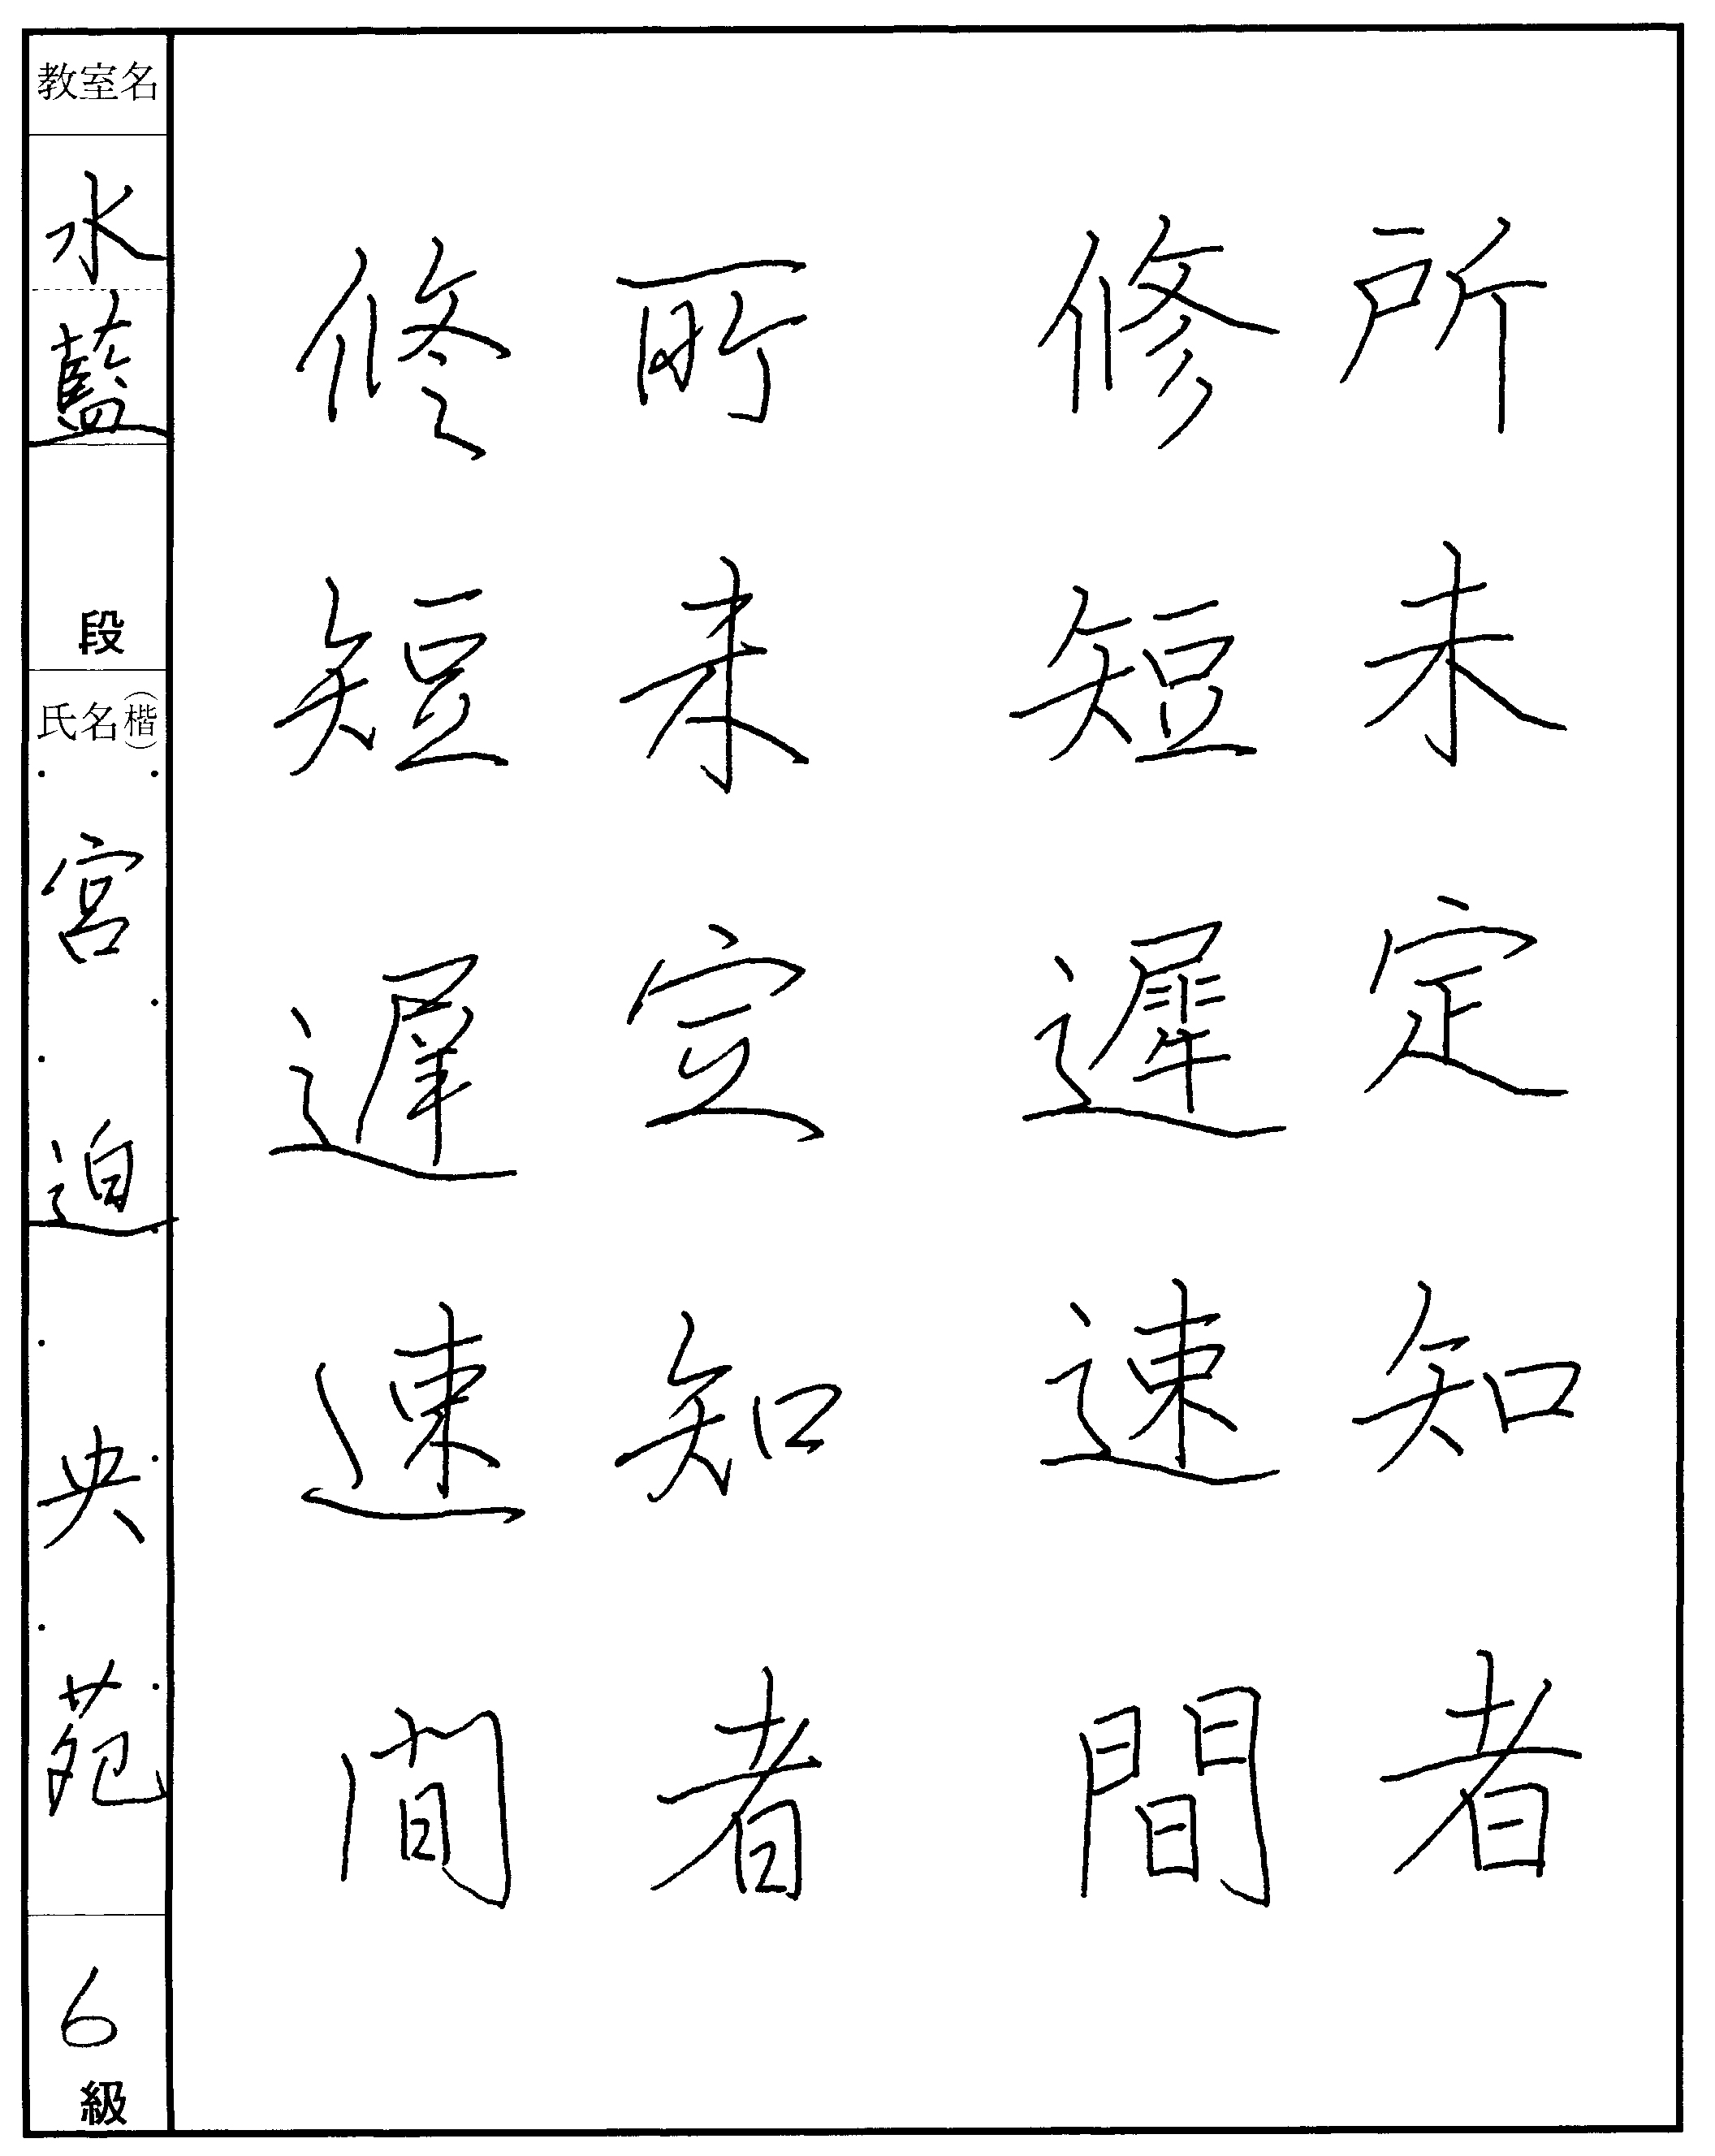 所未定知者
修短遅速間
所未定知者
修短遅速間
教室名
水藍
段
氏名(楷)
宮迫央苑
6級